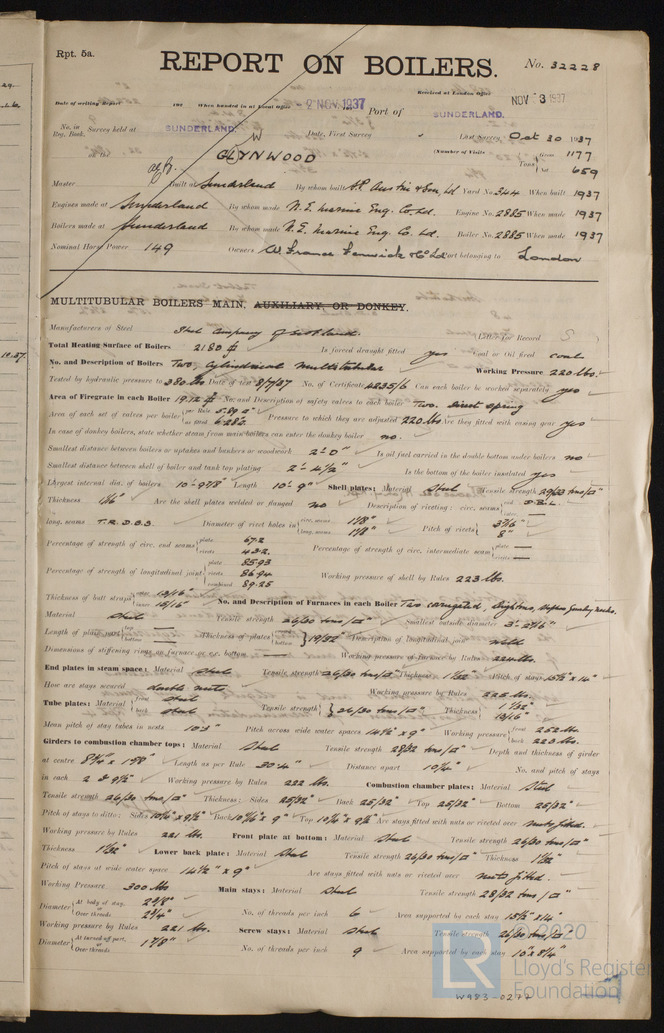 Rpt. 5a.
REPORT ON BOILERS.
No. 32228
Date of writing Report 19 When handed in at Local Office - 2 NOV 1937 Port of SUNDERLAND.
Received at London Office NOV 3 1937
No. in Reg. Book. Survey held at SUNDERLAND. Date, First Survey Last Survey, Oct 30 1937
on the GLYNWOOD (Number of Visits Tons Gross 1177 Net 659
Master Built at Sunderland By whom built S.P. Austin & Son, Ld Yard No. 344 When built 1937
Engines made at Sunderland By whom made N.E. Marine Eng. Co. Ld. Engine No. 2885 When made 1937
Boilers made at Sunderland By whom made N.E. Marine Eng. Co. Ld. Boiler No. 2885 When made 1937
Nominal Horse Power 149 Owners Wm France Fenwick & Co Ld Port belonging to London
MULTITUBULAR BOILERS MAIN, AUXILIARY, OR DONKEY.
Manufacturers of Steel Steel Company of Scotland. (Letter for Record S )
Total Heating Surface of Boilers 2180 Is forced draught fitted yes Coal or Oil fired coal
No. and Description of Boilers Two, Cylindrical Multitubular Working Pressure 220 lbs.
Tested by hydraulic pressure to 380 lbs Date of test 8/7/37 No. of Certificate 4235/6 Can each boiler be worked separately yes
Area of Firegrate in each Boiler No. and Description of safety valves to each boiler Two. Direct spring
Area of each set of valves per boiler per Rule 5.89 as fitted 6.28 Pressure to which they are adjusted 220 lbs Are they fitted with easing gear yes
In case of donkey boilers, state whether steam from main boilers can enter the donkey boiler no.
Smallest distance between boilers or uptakes and bunkers or woodwork 2'-0" Is oil fuel carried in the double bottom under boilers no
Smallest distance between shell of boiler and tank top plating 2'-4½" Is the bottom of the boiler insulated yes
Largest internal dia. of boilers 10'-9⅞" Length 10'-9" Shell plates: Material Steel Tensile strength 29/33 tons/□"
Thickness 1 1/16" Are the shell plates welded or flanged no Description of riveting: circ. seams
long. seams T.R.D.B.S. Diameter of rivet holes in circ. seams 1⅛" long. seams 1⅛" Pitch of rivets 8"
Percentage of strength of circ. end seams plate 67.2 rivets 43.2 Percentage of strength of circ. intermediate seam plate rivets
Percentage of strength of longitudinal joint plate 85.93 rivets 86.94 combined 89.25 Working pressure of shell by Rules 223 lbs.
Thickness of butt straps outer 13/16" inner 15/16" No. and Description of Furnaces in each Boiler Two corrugated, Deighton,
Material Steel Tensile strength 26/30 tons/□" Smallest outside diameter
Length of plain part top bottom Thickness of plates 19/32" Description of longitudinal joint weld
Dimensions of stiffening rings on furnace or c.c. bottom Working pressure of furnace by Rules 224 lbs.
End plates in steam space: Material Steel Tensile strength 26/30 tons/□" Thickness 1 1/32" Pitch of stays 15½" x 14"
How are stays secured double nuts Working pressure by Rules 222 lbs.
Tube plates: Material front Steel back Steel Tensile strength 26/30 tons/□" Thickness 1 1/32" 13/16"
Mean pitch of stay tubes in nests 10.3" Pitch across wide water spaces 14½" x 9" Working pressure front 252 lbs. back 223 lbs.
Girders to combustion chamber tops: Material Steel Tensile strength 28/32 tons/□" Depth and thickness of girder
at centre Length as per Rule 30.4" Distance apart 10¼" No. and pitch of stays
in each 2 @ 9½" Working pressure by Rules 222 lbs. Combustion chamber plates: Material Steel
Tensile strength 26/30 tons/□" Thickness: Sides 25/32" Back 25/32" Top 25/32" Bottom 25/32"
Pitch of stays to ditto: Sides Back Top Are stays fitted with nuts or riveted over nuts fitted.
Working pressure by Rules 221 lbs. Front plate at bottom: Material Steel Tensile strength 26/30 tons/□"
Thickness 1 1/32" Lower back plate: Material Steel Tensile strength 26/30 tons/□" Thickness 1 1/32"
Pitch of stays at wide water space 14½" x 9" Are stays fitted with nuts or riveted over nuts fitted.
Working Pressure 300 lbs Main stays: Material Steel Tensile strength 28/32 tons/□"
Diameter At body of stay, 2⅝" or Over threads 2¾" No. of threads per inch 6 Area supported by each stay 15½" x 14"
Working pressure by Rules 221 lbs. Screw stays: Material Steel Tensile strength 26/30 tons/□"
Diameter At turned off part, or Over threads 1⅞" No. of threads per inch 9 Area supported by each stay 10" x 8¾"
© 2020
Lloyd's Register
Foundation
W983-0277